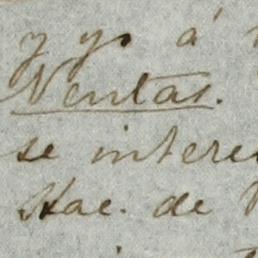 y yo á
Ventas.
se intere
Hac. de